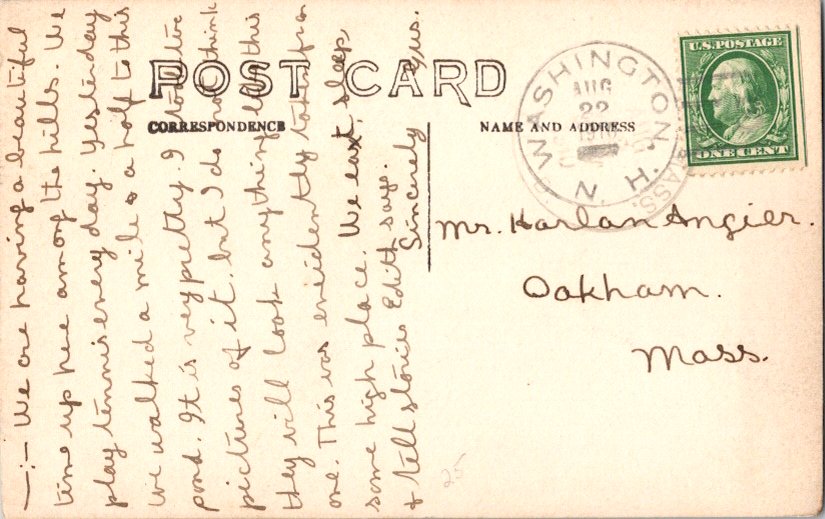 POST CARD
CORRESPONDENCE
NAME AND ADDRESS
U.S. POSTAGE
ONE CENT
WASHINGTON
AUG
22
1910
N. H.
MASS.
Mr. Harlan Angier.
Oakham.
Mass.
—:— We are having a beautiful
time up here among the hills. We
play tennis every day. Yesterday
we walked a mile & a half to this
pond. It is very pretty. I took two
pictures of it, but I do not think
they will look anything like this
one. This was evidently taken from
some high place. We eat, sleep,
& tell stories Edith says.
Sincerely
25